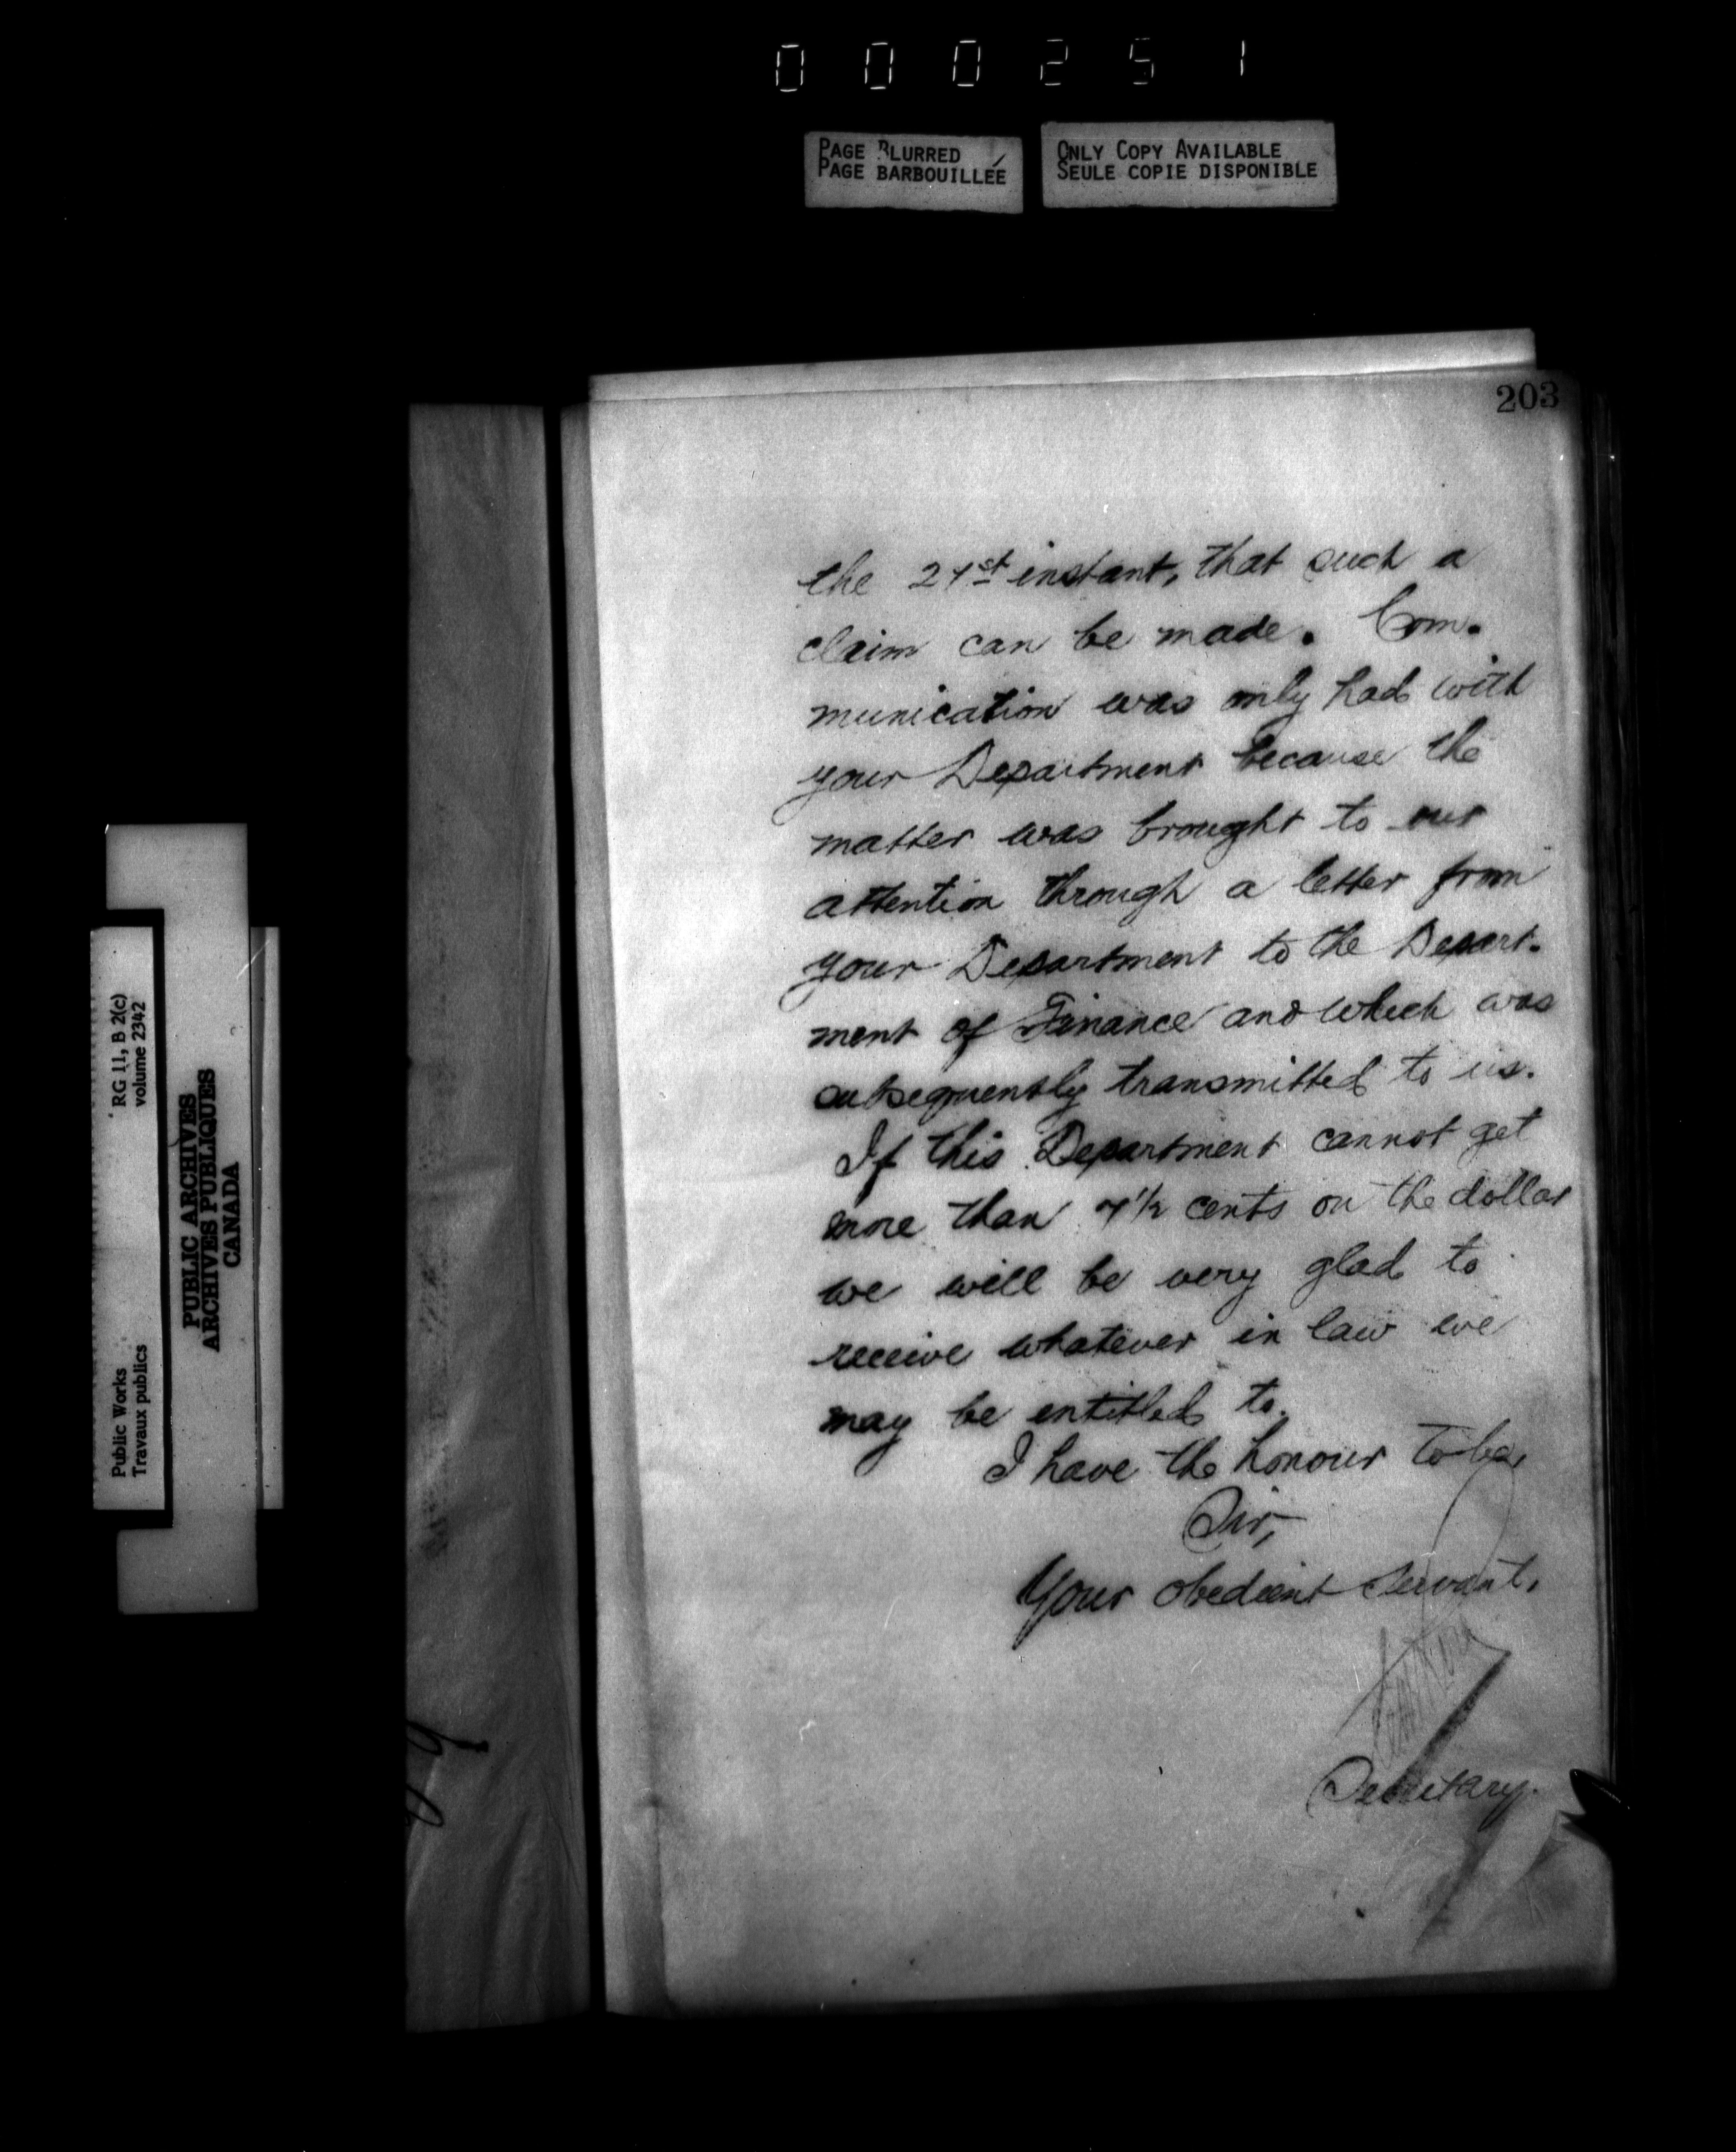 000251
PAGE BLURRED
PAGE BARBOUILLÉE
ONLY COPY AVAILABLE
SEULE COPIE DISPONIBLE
203
the 21st instant, that such a
claim can be made. Com-
munication was only had with
your Department because the
matter was brought to our
attention through a letter from
your Department to the Depart-
ment of Finance and which was
subsequently transmitted to us.
If this Department cannot get
more than 7½ cents on the dollar
we will be very glad to
receive whatever in law we
may be entitled to.
I have the honour to be,
Sir,
Your obedient servant,
Secretary.
RG 11, B 2(c)
volume 2342
Public Works
Travaux publics
PUBLIC ARCHIVES
ARCHIVES PUBLIQUES
CANADA